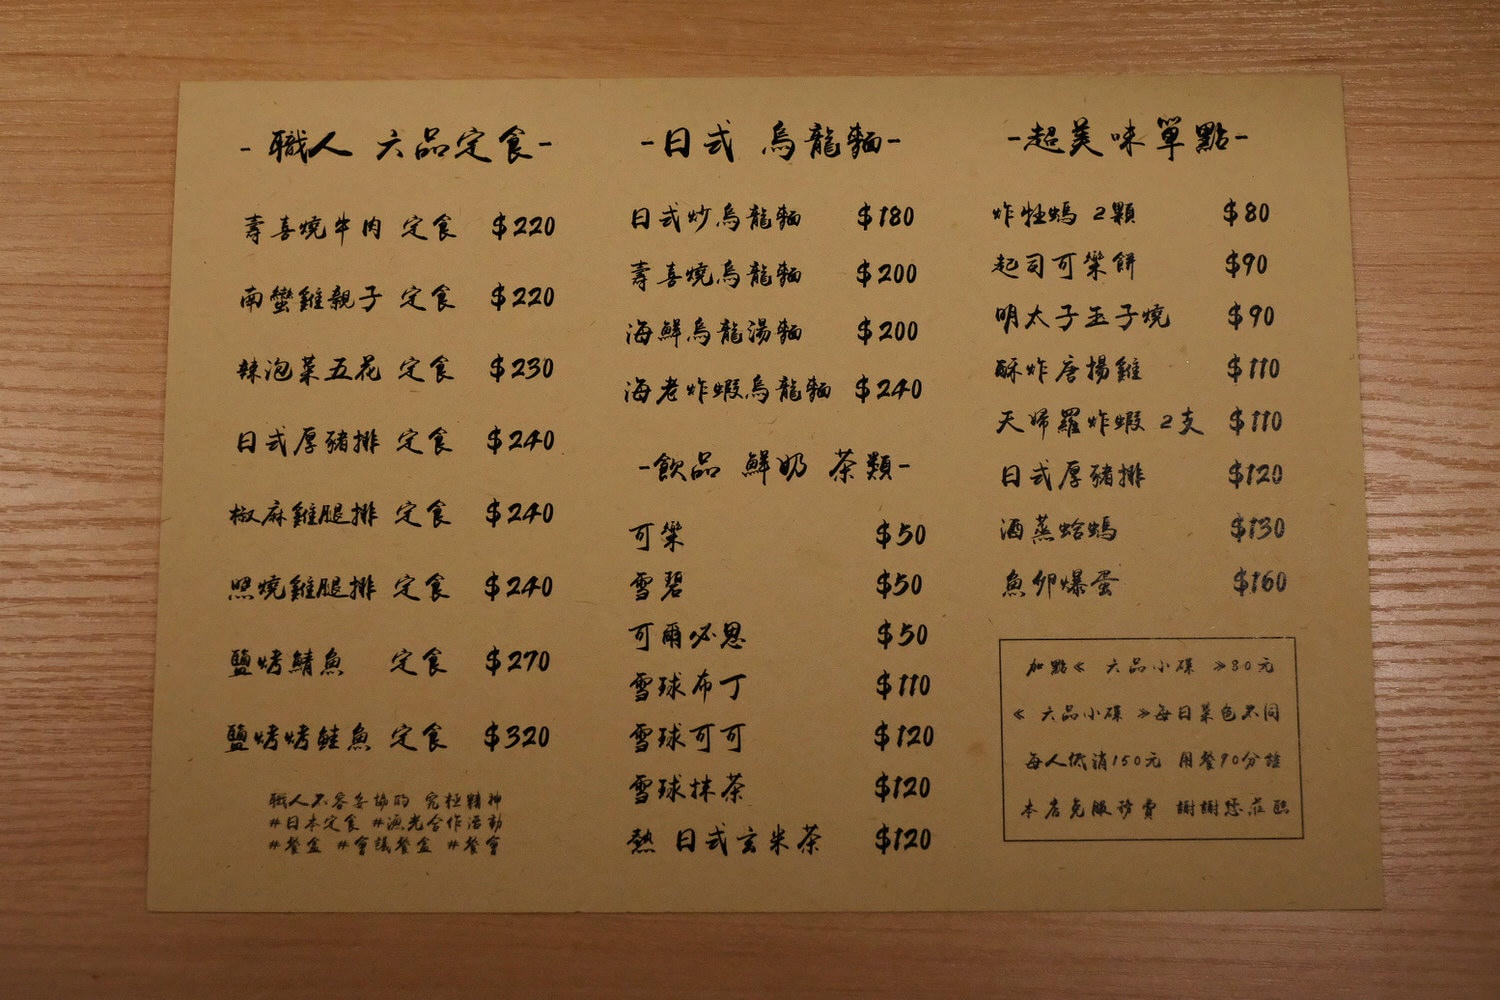 -職人 六品定食-
壽喜燒牛肉 定食 $220
南蠻雞親子 定食 $220
辣泡菜五花 定食 $230
日式厚豬排 定食 $240
椒麻雞腿排 定食 $240
照燒雞腿排 定食 $240
鹽烤鯖魚 定食 $270
鹽烤烤鮭魚 定食 $320
職人不容妥協的 究極精神
#日本定食 #漁光合作活動
#餐盒 #會議餐盒 #餐會
-日式 烏龍麵-
日式炒烏龍麵 $180
壽喜燒烏龍麵 $200
海鮮烏龍湯麵 $200
海老炸蝦烏龍麵 $240
-飲品 鮮奶 茶類-
可樂 $50
雪碧 $50
可爾必思 $50
雪球布丁 $110
雪球可可 $120
雪球抹茶 $120
熱 日式玄米茶 $120
-超美味單點-
炸牡蠣 2顆 $80
起司可樂餅 $90
明太子玉子燒 $90
酥炸唐揚雞 $110
天婦羅炸蝦 2支 $110
日式厚豬排 $120
酒蒸蛤蠣 $130
魚卵爆蛋 $160
加點《 六品小碟 》80元
《 六品小碟 》每日菜色不同
每人低消150元 用餐90分鐘
本店免服務費 謝謝您蒞臨